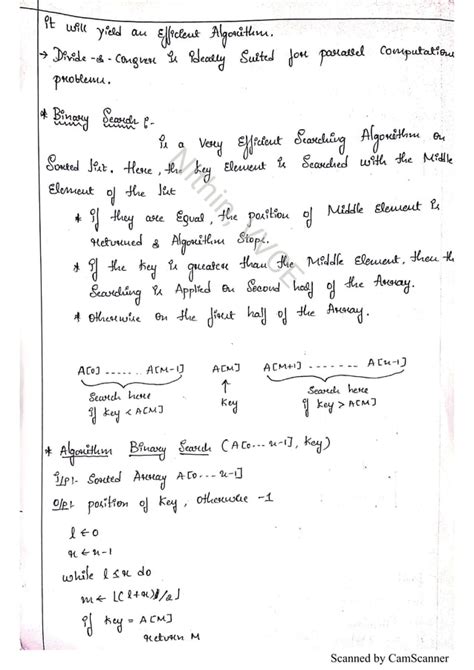 it will yield an Efficient Algorithm.
→ Divide-&-Conquer is Ideally Suited for parallel Computation
problems.
* Binary Search :-
is a Very Efficient Searching Algorithm on
Sorted list. Here, the key Element is Searched with the Middle
Element of the list
* If they are Equal, the position of Middle Element is
returned & Algorithm Stops.
* If the key is greater than the Middle Element, then the
Searching is Applied on Second half of the Array.
* otherwise on the first half of the Array.
A[0] ....... A[M-1] A[M] A[M+1] ........ A[n-1]
Search here ↑ Search here
if key < A[M] Key if key > A[M]
* Algorithm Binary Search (A[0...n-1], key)
I/p:- Sorted Array A[0...n-1]
O/p:- position of key, otherwise -1
l ← 0
r ← n-1
while l ≤ r do
m ← ⌊(l+r)/2⌋
if key = A[M]
return M
Nithin, VVCE
Scanned by CamScanner